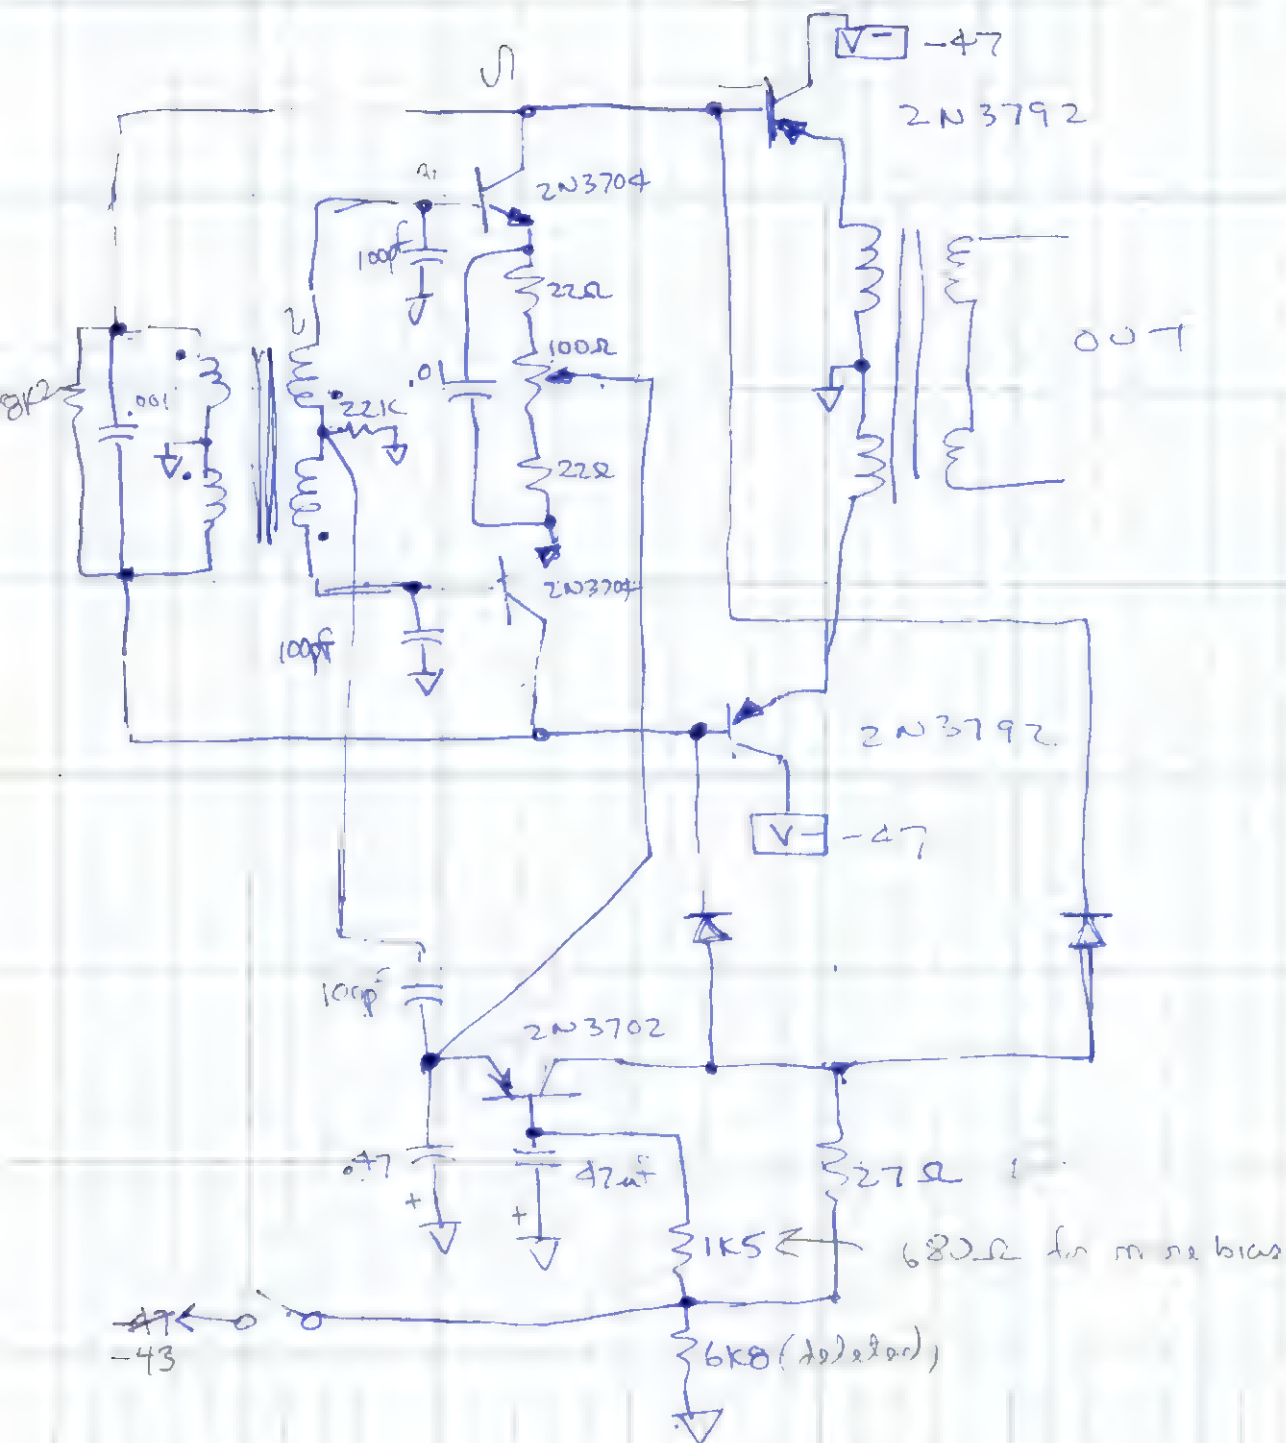 V- -47
2N3792
2N3704
100pf
22Ω
100Ω
OUT
8K2
.001
.0
22K
22Ω
2N3704
100pf
2N3792
V- -47
100pf
2N3702
.47
+
47uf
+
27Ω
1K5
680Ω for more bias
-47
-43
6K8 (deleted)